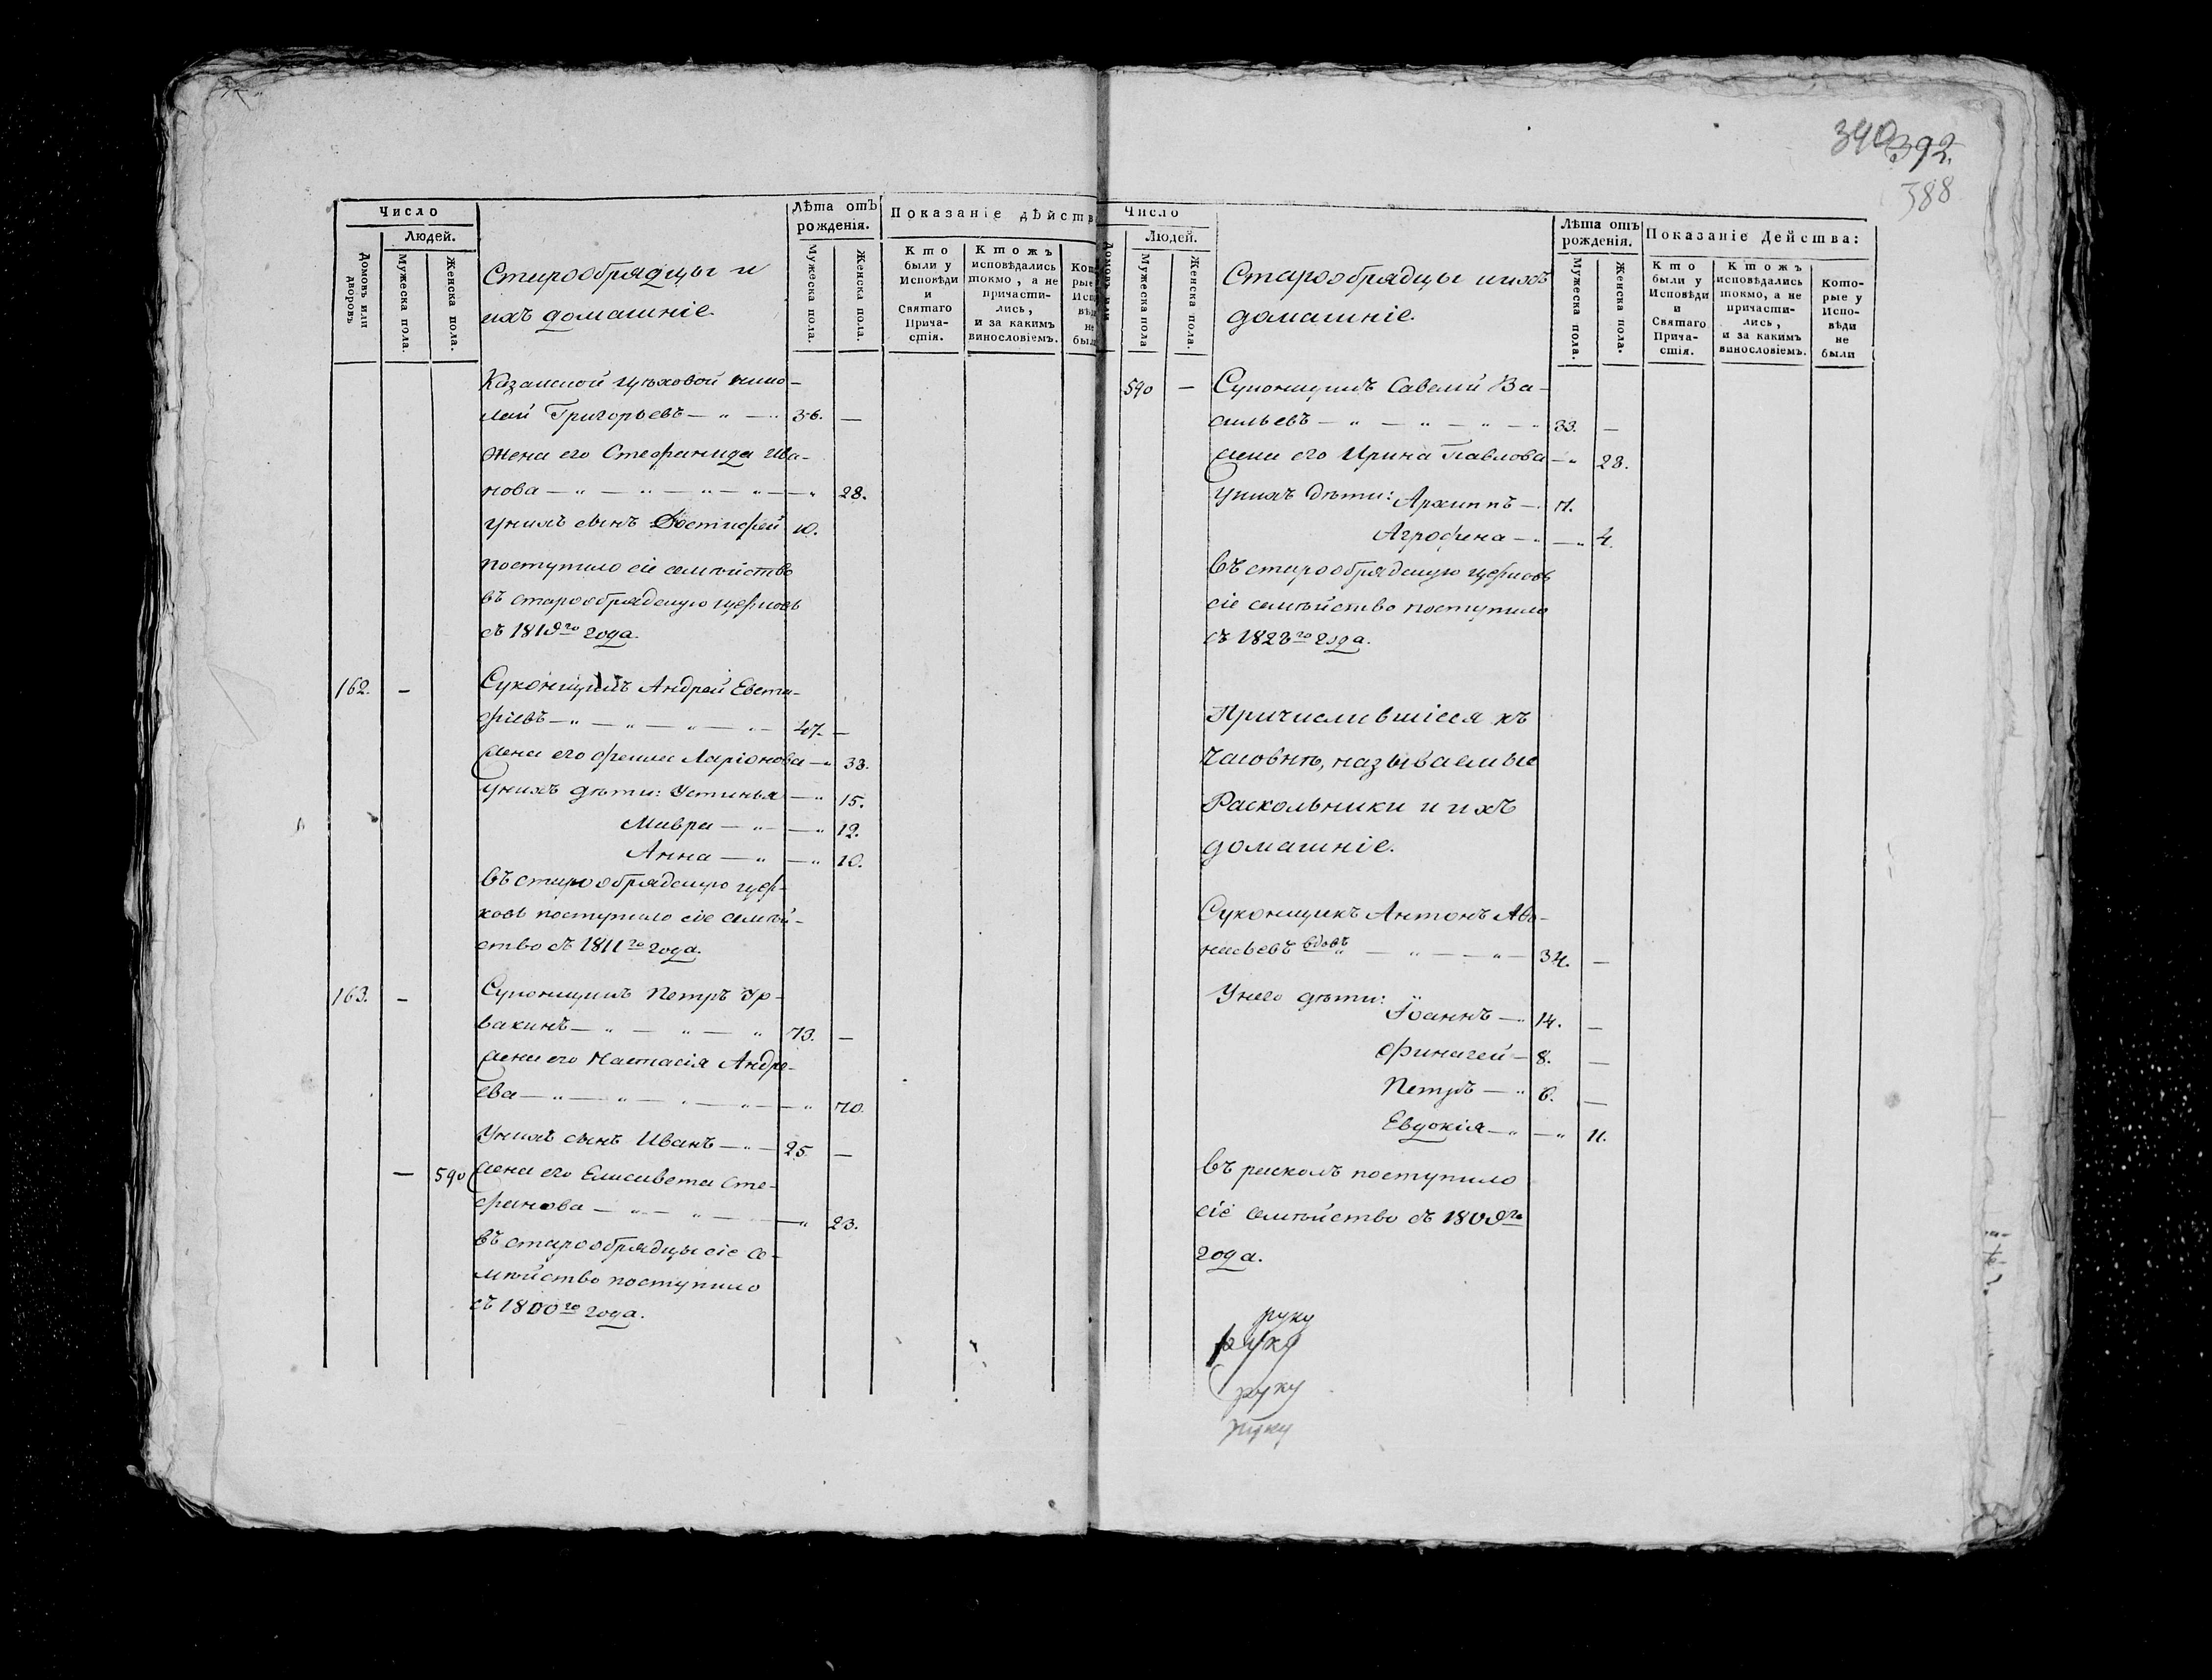 340 392.
388
Число
Людей.
Домовъ или дворовъ
Мужеска пола.
Женска пола.
Старообрядцы и
ихъ домашніе.
Лѣта отъ
рожденія.
Мужеска пола.
Женска пола.
Показаніе дѣйств
Кто
были у
Исповѣди
и
Святаго
Прича-
стія.
Ктожъ
исповѣдались
токмо, а не
причасти-
лись,
и за какимъ
винословіемъ.
Казанской цѣховой Нико-
лай Григорьевъ — „ — 36. —
Жена его Стефанида Ива-
нова — „ — „ — „ — „ — „ 28.
У нихъ сынъ Достифей 10.
поступило сіе семѣйство
въ старообрядскую церковь
съ 1819го года.
162. — Суконщикъ Андрей Евста-
фіевъ — „ — „ — „ — 47. —
Жена его Ларіонова — „ 33.
У нихъ дѣти: Устинья — „ 15.
Мавра — „ — „ 12.
Анна — „ — „ 10.
въ старообрядскую цер-
ковь поступило сіе семѣй-
ство съ 1811го года.
163. — Суконщикъ Петръ
— „ — „ — „ 73. —
Жена его Настасія Андре-
ева — „ — „ — „ — „ — „ 70.
У нихъ сынъ Иванъ — „ — 25. —
— 590 Жена его Елисавета Сте-
фанова — „ — „ — — „ 23.
въ старообрядцы сіе се-
мѣйство поступило
съ 1800го года.
Число
Людей.
Мужеска пола
Женска пола.
Старообрядцы и ихъ
домашніе.
Лѣта отъ
рожденія.
Мужеска пола.
Женска пола.
Показаніе Действа:
Кто
были у
Исповѣди
и
Святаго
Прича-
стія.
Ктожъ
исповѣдались
токмо, а не
причасти-
лись,
и за какимъ
винословіемъ.
Кото-
рые у
Испо-
вѣди
не
были
590 — Суконщикъ Савелій Ва-
сильевъ — „ — „ — „ — „ 33. —
Жена его Ирина Павлова — „ 28.
У нихъ дѣти: Архиппъ — 7.
Агрофена — „ — „ 4.
въ старообрядскую церковь
сіе семѣйство поступило
съ 1823го года.
Причислившіеся къ
часовнѣ, называемые
Раскольники и ихъ
домашніе.
Суконщикъ Антонъ Афа-
насьевъ вдовъ — „ — — „ — 34. —
У него дѣти: Іоаннъ — „ 14. —
Финагей — 8. —
Петръ — „ 6. —
Евдокія — „ — „ 11.
въ расколъ поступило
сіе семѣйство съ 1809го
года.
руку
руку
руку
руку